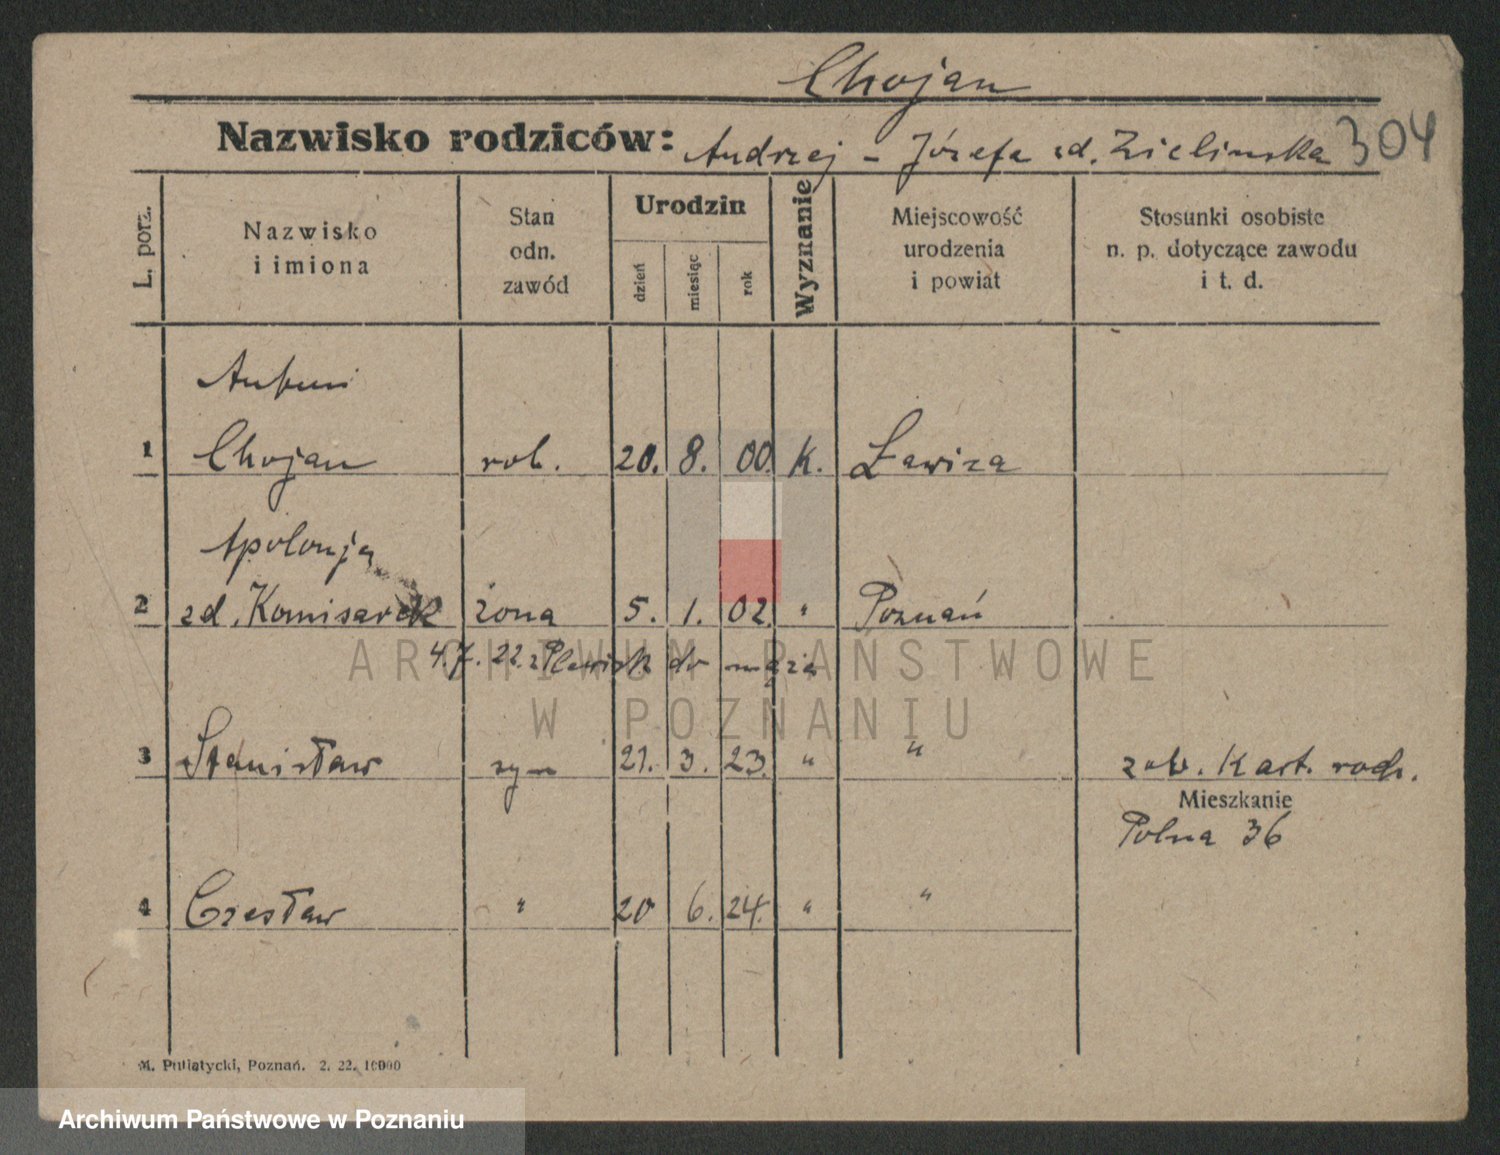 Chojan
Nazwisko rodziców: Andrzej - Józefa zd. Zielinska 304
L. porz.
Nazwisko
i imiona
Stan
odn.
zawód
Urodzin
dzień
miesiąc
rok
Wyznanie
Miejscowość
urodzenia
i powiat
Stosunki osobiste
n. p. dotyczące zawodu
i t. d.
Antoni
1 Chojan rob. 20. 8. 00. K. Ławica
Apolonja
2 zd. Komisarek żona 5. 1. 02. " Poznań
4.7.22. z Plewisk do męża
3 Stanisław syn 21. 3. 23. " " zob. Kart. rodz.
Mieszkanie
Polna 36
4 Czesław " 20 6. 24. " "
M. Putiatycki, Poznań. 2. 22. 10000
ARCHIWUM PAŃSTWOWE
W POZNANIU
Archiwum Państwowe w Poznaniu